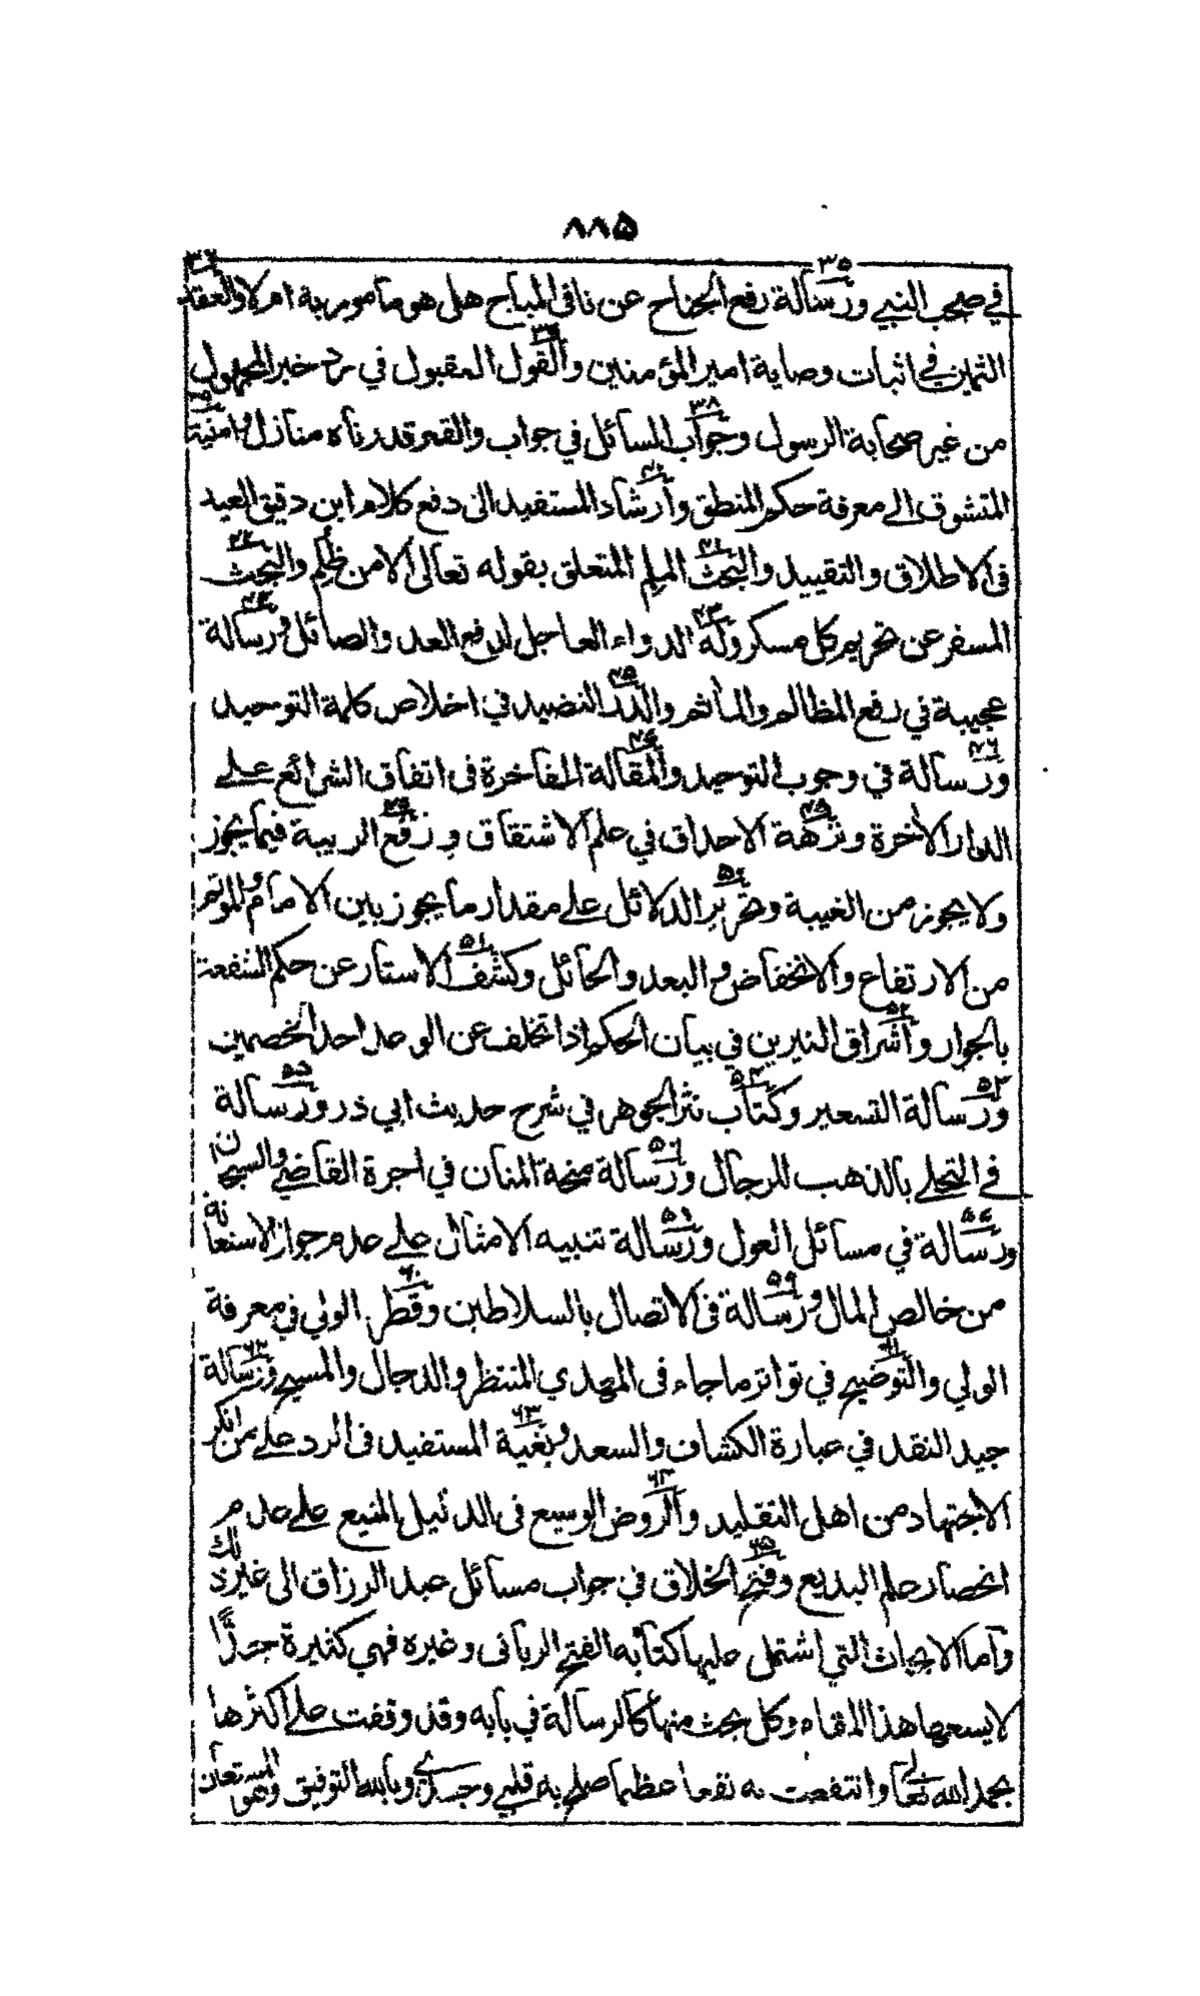 ٨٨٥
في صحب النبي ورسالة رفع الجناح عن نافى المباح هل هو مأمور به ام لا والعقد
الثمين في اثبات وصاية امير المؤمنين والقول المقبول في رد خبر المجهول
من غير صحابة الرسول وجواب السائل في جواب والقمر قدرناه منازل وامنية
المتشوق الى معرفة حكم المنطق وارشاد المستفيد الى دفع كلام ابن دقيق العيد
فى الاطلاق والتقييد والبحث الملم المتعلق بقوله تعالى الا من ظلم والبحث
المسفر عن تحريم كل مسكر وله الدواء العاجل لدفع العدو الصائل ورسالة
عجيبة في رفع المظالم والمأثم والدر النضيد في اخلاص كلمة التوحيد
ورسالة في وجوب التوحيد والمقالة الفاخرة فى اتفاق الشرائع على
الدار الآخرة ونزهة الاحداق في علم الاشتقاق ورفع الريبة فيما يجوز
ولا يجوز من الغيبة وتحرير الدلائل على مقدار ما يجوز بين الامام والمؤتم
من الارتفاع والانخفاض والبعد والحائل وكشف الاستار عن حكم الشفعة
بالجوار واشراق النيرين في بيان الحكم اذا تخلف عن الوعد احد الخصمين
ورسالة التسعير وكتاب نثر الجوهر في شرح حديث ابي ذر ورسالة
في التحلي بالذهب للرجال ورسالة منحة المنان في اجرة القاضي والسجان
ورسالة في مسائل العول ورسالة تنبيه الامثال على عدم جواز الاستعانة
من خالص المال ورسالة فى الاتصال بالسلاطين وقطر الولي في معرفة
الولي والتوضيح في تواتر ما جاء فى المهدي المنتظر والدجال والمسيح ورسالة
جيد النقد في عبارة الكشاف والسعد وبغية المستفيد فى الرد على من انكر
الاجتهاد من اهل التقليد والروض الوسيع فى الدليل المنيع على عدم
انحصار علم البديع وفتح الخلاق في جواب مسائل عبد الرزاق الى غير ذلك
وأما الابحاث التي اشتمل عليها كتابه الفتح الربانى وغيره فهي كثيرة جدًّا
لا يسعها هذا المقام وكل بحث منها كالرسالة في بابه وقد وقفت على اكثرها
بحمد الله تعالى وانتفعت به نفعا عظيما صلح به قلبي وجسدي وبالله التوفيق وهو المستعان